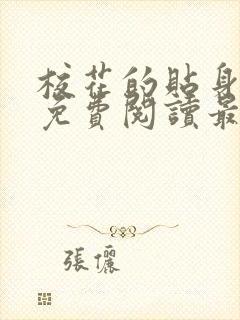 校花的貼身
免費閱讀最
張儷